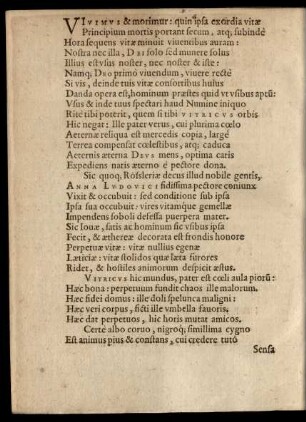 VIVIMVS & morimur: quin ipsa exordia vitæ
Principium mortis portant secum, atq; subindè
Hora sequens vitæ minuit viuentibus auram:
Nostra nec illa, DEI solo sed munere solus
Illius est vsus noster, nec noster & iste:
Namq; DEO primò viuendum, viuere rectè
Si vis, deinde tuis vitæ consortibus huius
Danda opera est, hominum præstes quid vt vsibus aptũ:
Vsus & inde tuus spectari haud Numine iniquo
Ritè tibi poterit, quem si tibi VITRICVS orbis
Hic negat: Ille pater verus, cui plurima cœlo
Æternæ reliqua est mercedis copia, largè
Terrea compensat cœlestibus, atq; caduca
Aeternis æterna DEVS mens, optima caris
Expediens natis æterno è pectore dona.
Sic quoq; Rösleriæ decus illud nobile gentis,
ANNA LVDOVICI fidissima pectore coniunx
Vixit & occubuit: sed conditione sub ipsa
Ipsa sua occubuit: vires vitamque gemellæ
Impendens soboli defessa puerpera mater.
Sic Iouæ, satis ac hominum sic vsibus ipsa
Fecit, & æthereæ decorata est frondis honore
Perpetuæ vitæ: vitæ nullius egenæ
Læticiæ: vitæ stolidos quæ læta furores
Ridet, & hostiles animorum despicit æstus.
VITRICVS hic mundus, pater est cœli aula piorũ:
Hæc bona: perpetuum fundit chaos ille malorum.
Hæc fidei domus: ille doli spelunca maligni:
Hæc veri corpus, ficti ille vmbella fauoris.
Hæc dat perpetuos, hic horis mutat amicos.
Certè albo coruo, nigroq; simillima cygno
Est animus pius & constans, cui credere tutò
Sensa